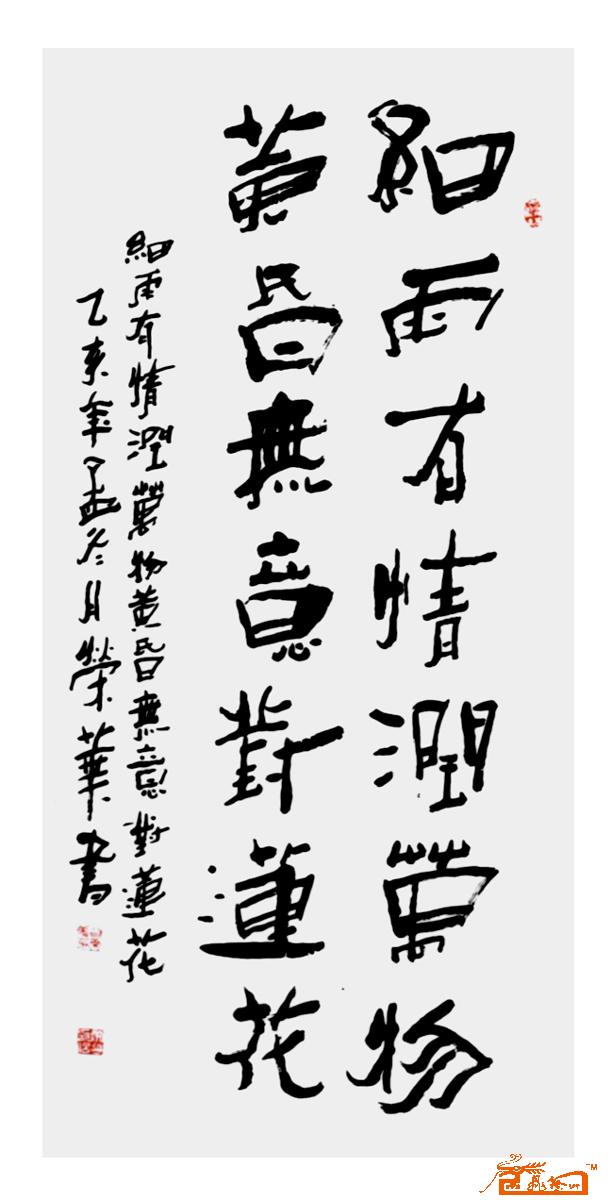 細雨有情潤萬物
黄昏無意對蓮花
細雨有情潤萬物黄昏無意對蓮花
乙亥年孟冬月榮華書